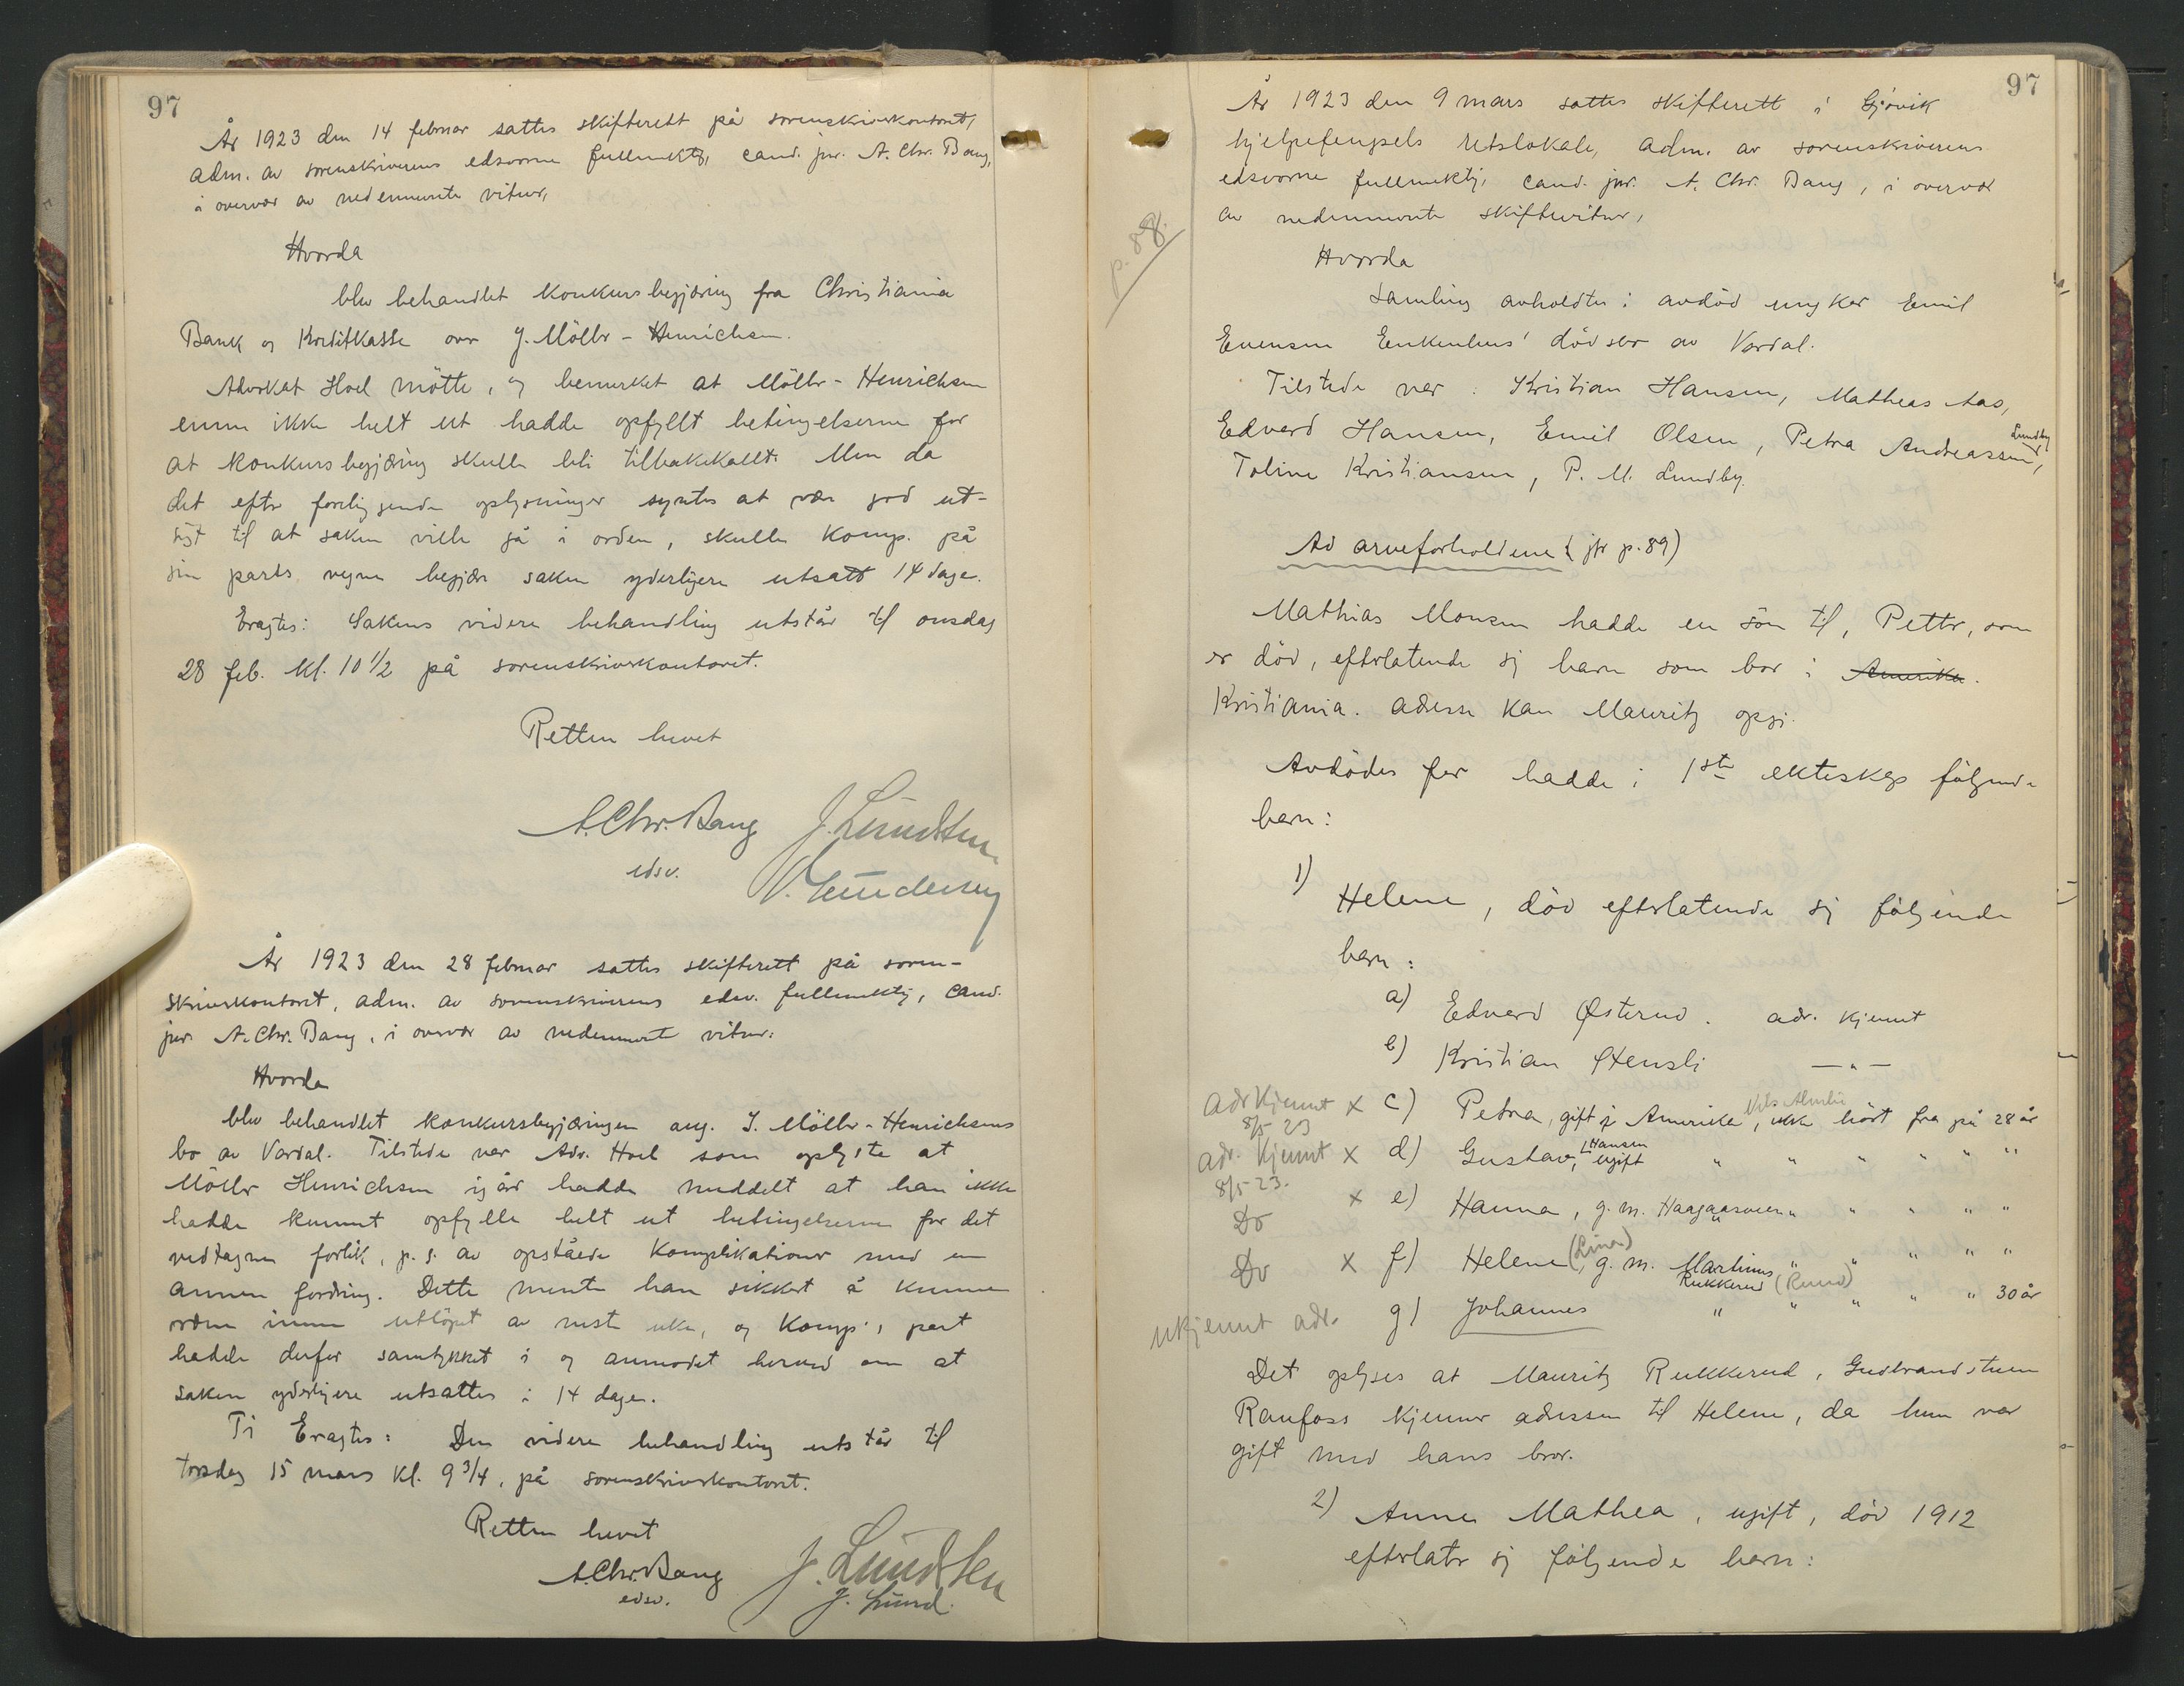 97
År 1923 den 14 februar sattes skifterett på sorenskriverkontoret,
adm. av sorenskriverens edsvorne fullmektig, cand. jur. A. Chr. Bang,
i overvær av nedennevnte vitner,
Hvorda
blev behandlet konkursbegjæring fra Christiania
Bank og Kreditkasse over J. Möller-Henrichsen.
Advokat Hoel møtte, og bemerket at Möller-Henrichsen
ennu ikke helt ut hadde opfyllt betingelserne for
at konkursbegjæring skulle bli tilbakekallt. Men da
det efter foreliggende oplysninger syntes at være god ut-
sigt til at saken ville gå i orden, skulle komp. på
sin parts vegne begjære saken yderligere utsatt 14 dage.
Eragtes: Sakens videre behandling utstår til onsdag
28 feb. kl. 10 1/2 på sorenskriverkontoret.
Retten hevet
A. Chr. Bang J. Lundsten
edsv.
År 1923 den 28 februar sattes skifterett på soren-
skriverkontoret, adm. av sorenskriverens edsv. fullmektig, cand.
jur. A. Chr. Bang, i overvær av nedennevnte vitner:
Hvorda
blev behandlet konkursbegjæringen ang. J. Möller-Henrichsens
bo av Vardal. Tilstede var Adv. Hoel som oplyste at
Möller Henrichsen igår hadde meddelt at han ikke
hadde kunnet opfylle helt ut betingelserne for det
vedtagne forlik, p. g. av opståede komplikationer med en
annen fordring. Dette mente han sikkert å kunne
ordne innen utløpet av neste uke, og komp's part
hadde derfor samtykket i og anmodet herved om at
saken yderligere utsattes i 14 dager.
Ti Eragtes: Den videre behandling utstår til
torsdag 15 mars kl. 9 3/4, på sorenskriverkontoret.
Retten hevet
A. Chr. Bang J. Lundsten
edsv. J. Lund.
97
År 1923 den 9 mars sattes skifterett i Gjøvik
hjelpefengsels retslokale, adm. av sorenskriverens
edsvorne fullmektig, cand. jur. A. Chr. Bang, i overvær
av nedennevnte skiftevitner,
p. 88.
Hvorda
Samling avholdtes i avdød ungkar Emil
Evensen Enkenhus' dødsbo av Vardal.
Tilstede var: Kristian Hansen, Matheas Aas,
Edvard Hansen, Emil Olsen, Petra Andreassen Lundby,
Toline Kristiansen, P. M. Lundby.
Ad arveforholdene (jfr p. 89)
Mathias Monsen hadde en søn til, Petter, som
er død, efterlatende sig barn som bor i Amerika.
Kristiania. Adresse kan Mauritz opgi.
Avdødes far hadde i 1ste ekteskap følgende
barn:
1) Helene, død efterlatende sig følgende
barn:
a) Edvard Østerud. adr. kjennt
b) Kristian Stensli — " —
Adr kjennt 8/5 23 x c) Petra, gift i Amerika, Nils Almlie ikke hørt fra på 28 år
adr. kjennt 8/5 23. x d) Gustav, Hansen ugift " " " " " "
Do x e) Hanna, g. m. Haagaasveen " " " " "
Do x f) Helene (Line), g. m. Martinus " " " " "
Rukkerud (Ruud)
ukjennt adr. g) Johannes " " " " " 30 år
Det oplyses at Mauritz Rukkerud, Gudbrandstuen
Raufoss kjenner adressen til Helene, da hun var
gift med hans bror.
2) Anne Mathea, ugift, død 1912
efterlater sig følgende barn: